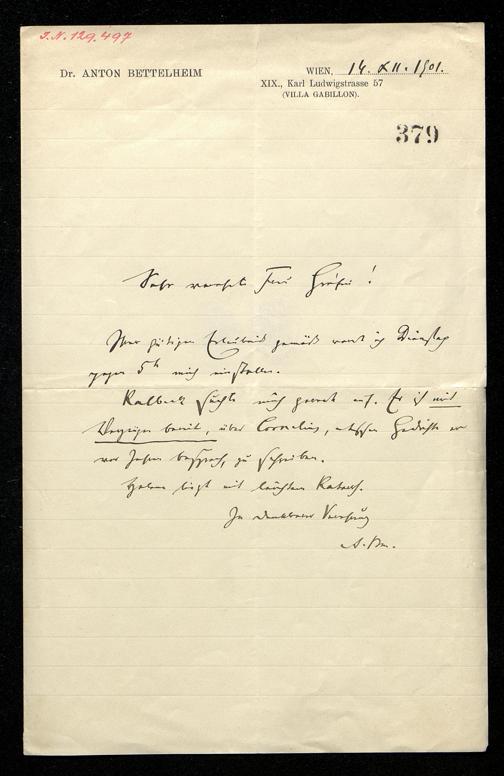 J.N. 129.497
Dr. ANTON BETTELHEIM
WIEN, 14. XII. 1901.
XIX., Karl Ludwigstrasse 57
(VILLA GABILLON).
379
Sehr verehrte Frau Gräfin!
Ihrer gütigen Erlaubnis gemäß werde ich Dienstag
gegen 5h mich einstellen.
Kalbeck suchte mich gerade auf. Er ist mit
Vergnügen bereit, über Cornelius, dessen Gedichte er
vor Jahren besprach, zu schreiben.
liegt mit leichtem Katarrh.
In dankbarer Verehrung
A. Be.